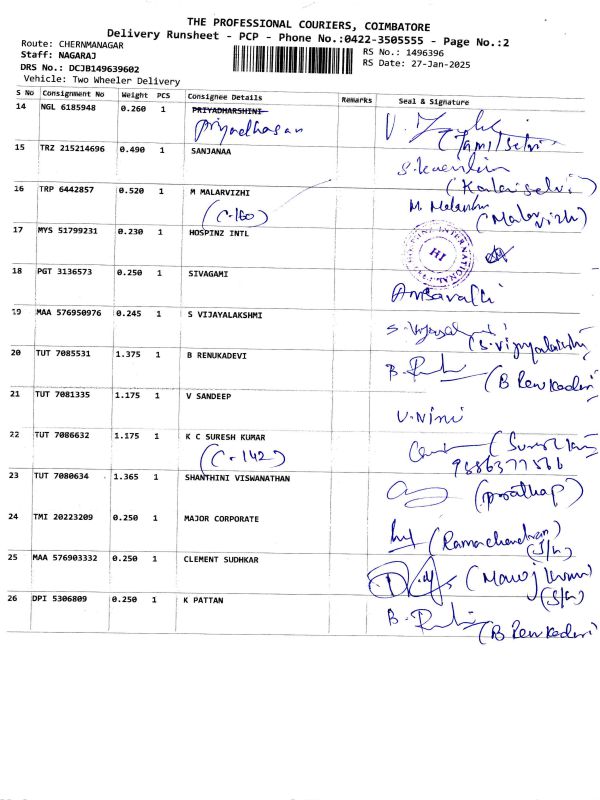 THE PROFESSIONAL COURIERS, COIMBATORE
Delivery Runsheet - PCP - Phone No.:0422-3505555 - Page No.:2
Route: CHERNMANAGAR
Staff: NAGARAJ
RS No.: 1496396
DRS No.: DCJB149639602
RS Date: 27-Jan-2025
Vehicle: Two Wheeler Delivery
S No Consignment No Weight PCS Consignee Details Remarks Seal & Signature
14 NGL 6185948 0.260 1 PRIYADHARSHINI
Priyadhasan
(Tamil Selvi
15 TRZ 215214696 0.490 1 SANJANAA
(Kalaiselvi)
16 TRP 6442857 0.520 1 M MALARVIZHI
(C-160) (Malar
vizhi)
17 MYS 51799231 0.230 1 HOSPINZ INTL
HOSPINZ INTERNATIONAL
HI
18 PGT 3136573 0.250 1 SIVAGAMI
19 MAA 576950976 0.245 1 S VIJAYALAKSHMI
(S.Vijayalakshmi
20 TUT 7085531 1.375 1 B RENUKADEVI
(B Renukadevi
21 TUT 7081335 1.175 1 V SANDEEP
V.Nini
22 TUT 7086632 1.175 1 K C SURESH KUMAR
(C-142)
9886377566
23 TUT 7080634 1.365 1 SHANTHINI VISWANATHAN
(prathap)
24 TMI 20223209 0.250 1 MAJOR CORPORATE
(Ramachandran)
(S/G)
25 MAA 576903332 0.250 1 CLEMENT SUDHKAR
(Manoj Kumar)
(S/G)
26 DPI 5306809 0.250 1 K PATTAN
(B Renukadevi